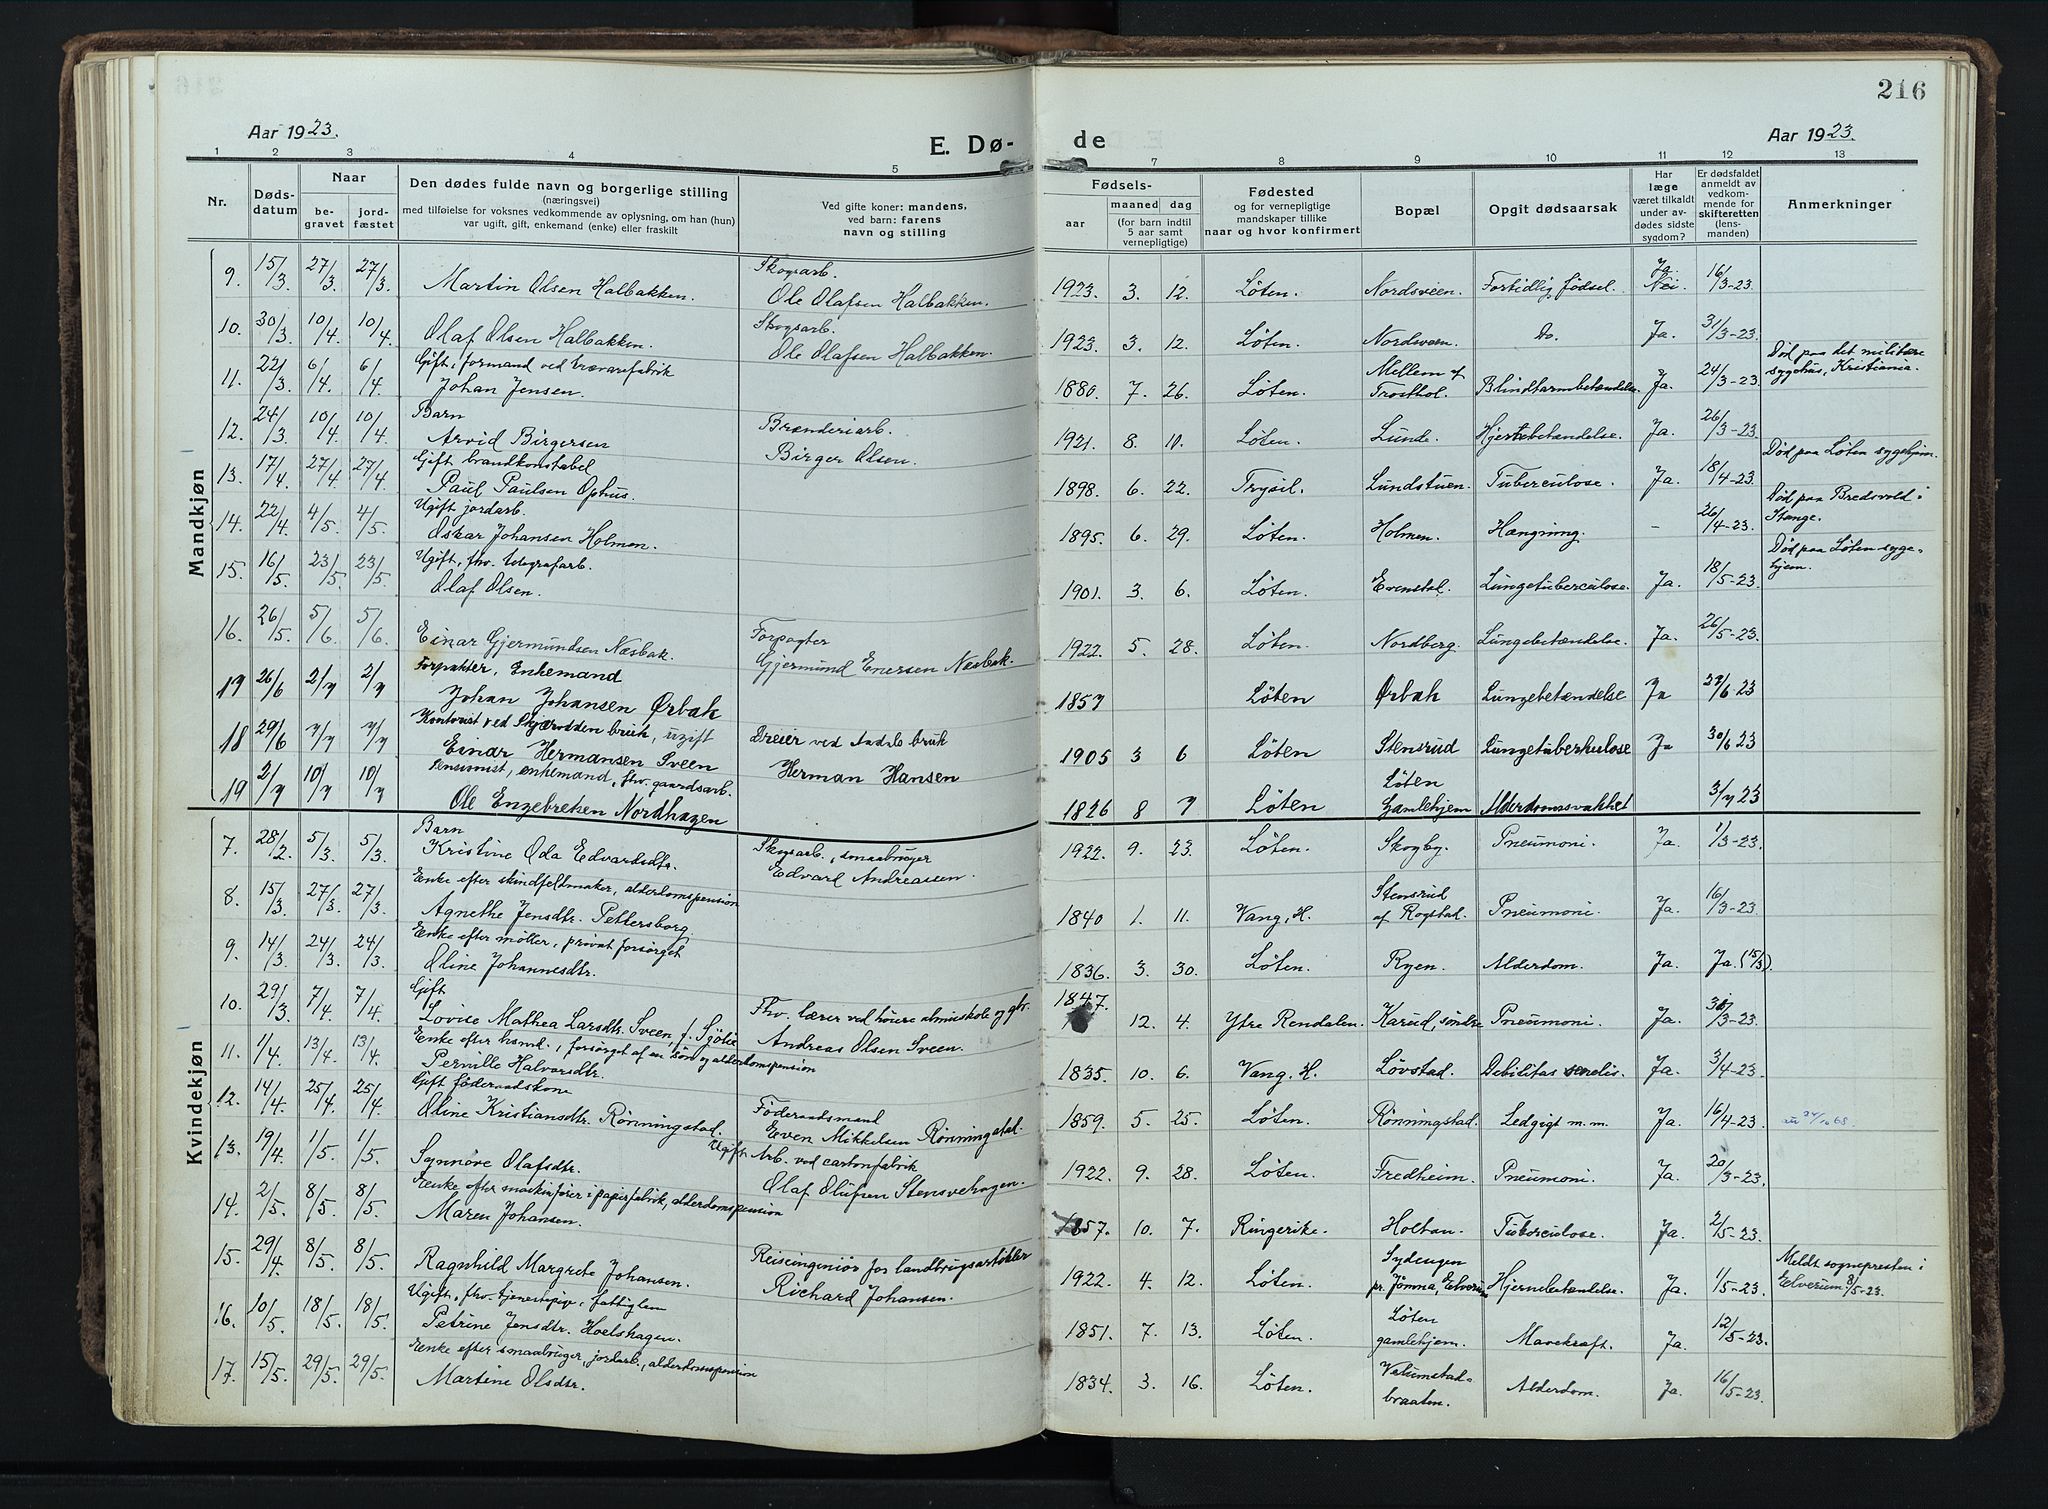 216
Aar 1923.
E. Dø-
de
Aar 1923.
1 2 3 4 5 7 8 9 10 11 12 13
Nr.
Døds-
datum
Naar
be-
gravet
jord-
fæstet
Den dødes fulde navn og borgerlige stilling
(næringsvei)
med tilføielse for voksnes vedkommende av oplysning, om han (hun)
var ugift, gift, enkemand (enke) eller fraskilt
Ved gifte koner: mandens,
ved barn: farens
navn og stilling
Fødsels-
aar
maaned dag
(for barn indtil
5 aar samt
vernepligtige)
Fødested
og for vernepligtige
mandskaper tillike
naar og hvor konfirmert
Bopæl
Opgit dødsaarsak
Har
læge
været tilkaldt
under av-
dødes sidste
sygdom?
Er dødsfaldet
anmeldt av
vedkom-
mende for
skifteretten
(lens-
manden)
Anmerkninger
Mandkjøn
9. 15/3 27/3 27/3 Martin Olsen Halbakken. Skogsarb.
Ole Olafsen Halbakken. 1923. 3. 12. Løten. Nordsveen. Fortidlig fødsel. Ja. Nei. 16/3-23.
10. 30/3 10/4 10/4 Olaf Olsen Halbakken. Skogsarb.
Ole Olafsen Halbakken. 1923. 3. 12. Løten. Nordsveen. Do. Ja. 31/3-23.
11. 22/3 6/4 6/4 Gift, formand ved trævarefabrik
Johan Jensen. 1880. 7. 26. Løten. Mellem af
Trosthol. Blindtarmbetændelse. Ja. 24/3-23. Død paa det militære
sygehus, Kristiania.
12. 24/3 10/4 10/4 Barn
Arvid Birgersen Brænderiarb.
Birger Olsen. 1921. 8. 10. Løten. Lunde. Hjertebetændelse. Ja. 26/3-23.
13. 17/4 27/4 27/4 Gift brandkonstabel
Paul Paulsen Ophus. 1898. 6. 22. Trysil. Lundstuen. Tuberculose. Ja. 18/4-23. Død paa Løten sygehjem.
14. 22/4 4/5 4/5 Ugift jordarb.
Oskar Johansen Holmen. 1895. 6. 29. Løten. Holmen. Hængning. - 26/4-23. Død paa Bredsvold i
Stange.
15. 16/5 23/5 23/5 Ugift, fhv. telegrafarb.
Olaf Olsen. 1901. 3. 6. Løten. Evenstal. Lungetuberculose. Ja. 18/5-23. Død paa Løten syge-
hjem.
16. 26/5 5/6 5/6 Einar Gjermundsen Næsbak. Forpagter
Gjermund Enersen Næsbak. 1922. 5. 28. Løten. Nordberg. Lungebetændelse. Ja. 26/5-23.
17 26/6 2/7 2/7 Forpakter, Enkemand
Johan Johansen Ørbak 1857 Løten Ørbak Lungebetændelse Ja 27/6-23
18 29/6 7/7 7/7 Kontorist ved Skjærodden bruk, ugift
Einar Hermansen Sveen Dreier ved Aadals bruk
Herman Hansen 1905 3 6 Løten Stensrud Lungetuberkulose Ja 30/6 23
19 2/7 10/7 10/7 Pensionist, enkemand, fhv. gaardsarb.
Ole Engebretsen Nordhagen 1826 8 7 Løten Løten
Gamlehjem Alderdomssvakhet 3/7 23
Kvindekjøn
7. 28/2. 5/3. 5/3. Barn
Kristine Oda Edvardsdtr. Skogsarb., smaabruger
Edvard Andreassen. 1922. 9. 23. Løten. Skogby. Pneumoni. Ja. 1/3-23.
8. 15/3. 27/3. 27/3. Enke efter skindfeldmaker, alderdomspension
Agnethe Jensdtr. Pettersborg. 1840 1. 11. Vang, H. Stensrud
af Rogstad. Pneumoni. Ja. 16/3-23.
9. 14/3. 24/3. 24/3. Enke efter møller, privat forsørget
Oline Johannesdtr. 1836. 3. 30. Løten. Ryen. Alderdom. Ja. Ja. (15/3).
10. 29/3. 7/4. 7/4. Gift
Lovise Mathea Larsdtr. Sveen, f. Sjølie Fhv. lærer ved høiere almueskole og gbr.
Andreas Olsen Sveen. 1847. 12. 4. Ytre Rendalen. Karud, søndre Pneumoni. Ja. 31/3-23.
11. 1/4. 13/4. 13/4. Enke efter hsmd., forsørget af en søn og alderdomspension
Pernille Halvorsdtr. 1835. 10. 6. Vang, H. Løvstad. Debilitas senelis. Ja. 3/4-23.
12. 14/4. 25/4. 25/4. Gift føderaadskone
Oline Kristiansdtr. Rønningstad. Føderaadsmand
Even Mikkelsen Rønningstad. 1859. 5. 25. Løten. Rønningstad. Ledgigt m.m. Ja. 16/4-23.
13. 19/4. 1/5. 1/5. Synnøve Olafsdtr. Ugift Arb. ved cartonfabrik
Olaf Olufsen Stensvehagen. 1922. 9. 28. Løten. Fredheim. Pneumoni. Ja. 20/3-23.
14. 2/5. 8/5. 8/5. Enke efter maskinfører i papirfabrik, alderdomspension
Maren Johansen. 1857. 10. 7. Ringerike. Holtan. Tuberculose. Ja. 2/5-23.
15. 29/4. 8/5. 8/5. Ragnhild Margrete Johansen. Reiseingeniør for landbrugsartikler
Richard Johansen. 1922. 4. 12. Løten. Sydengen
pr. Jømna, Elverum Hjernebetændelse. Ja. 1/5-23. Meldt sognepresten i
Elverum 8/5-23.
16. 10/5. 18/5. 18/5. Ugift, fhv. tjenestepige, fattiglem
Petrine Jensdtr. Hoelshagen. 1851. 7. 13. Løten. Løten
gamlehjem. Mavekræft. Ja. 12/5-23.
17. 15/5. 29/5. 29/5. Enke efter smaabruger, jordarb., alderdomspension
Martine Olsdtr. 1834. 3. 16. Løten. Vælumstad-
braaten. Alderdom. Ja. 16/5-23.